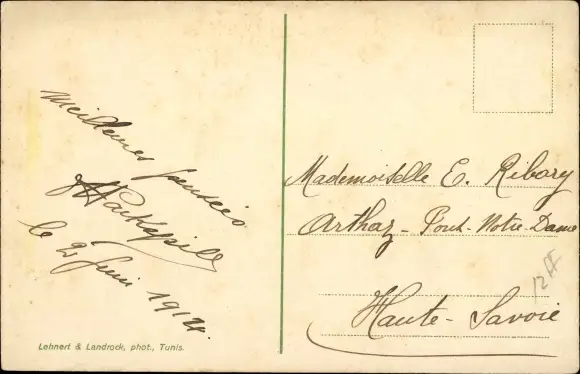 Meilleures pensées
le 2 Juin 1912.
Lehnert & Landrock, phot., Tunis.
Mademoiselle E. Ribory
Arthaz - Pont-Notre-Dame
Haute-Savoie
12 FF